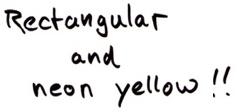 Rectangular
and
neon yellow !!